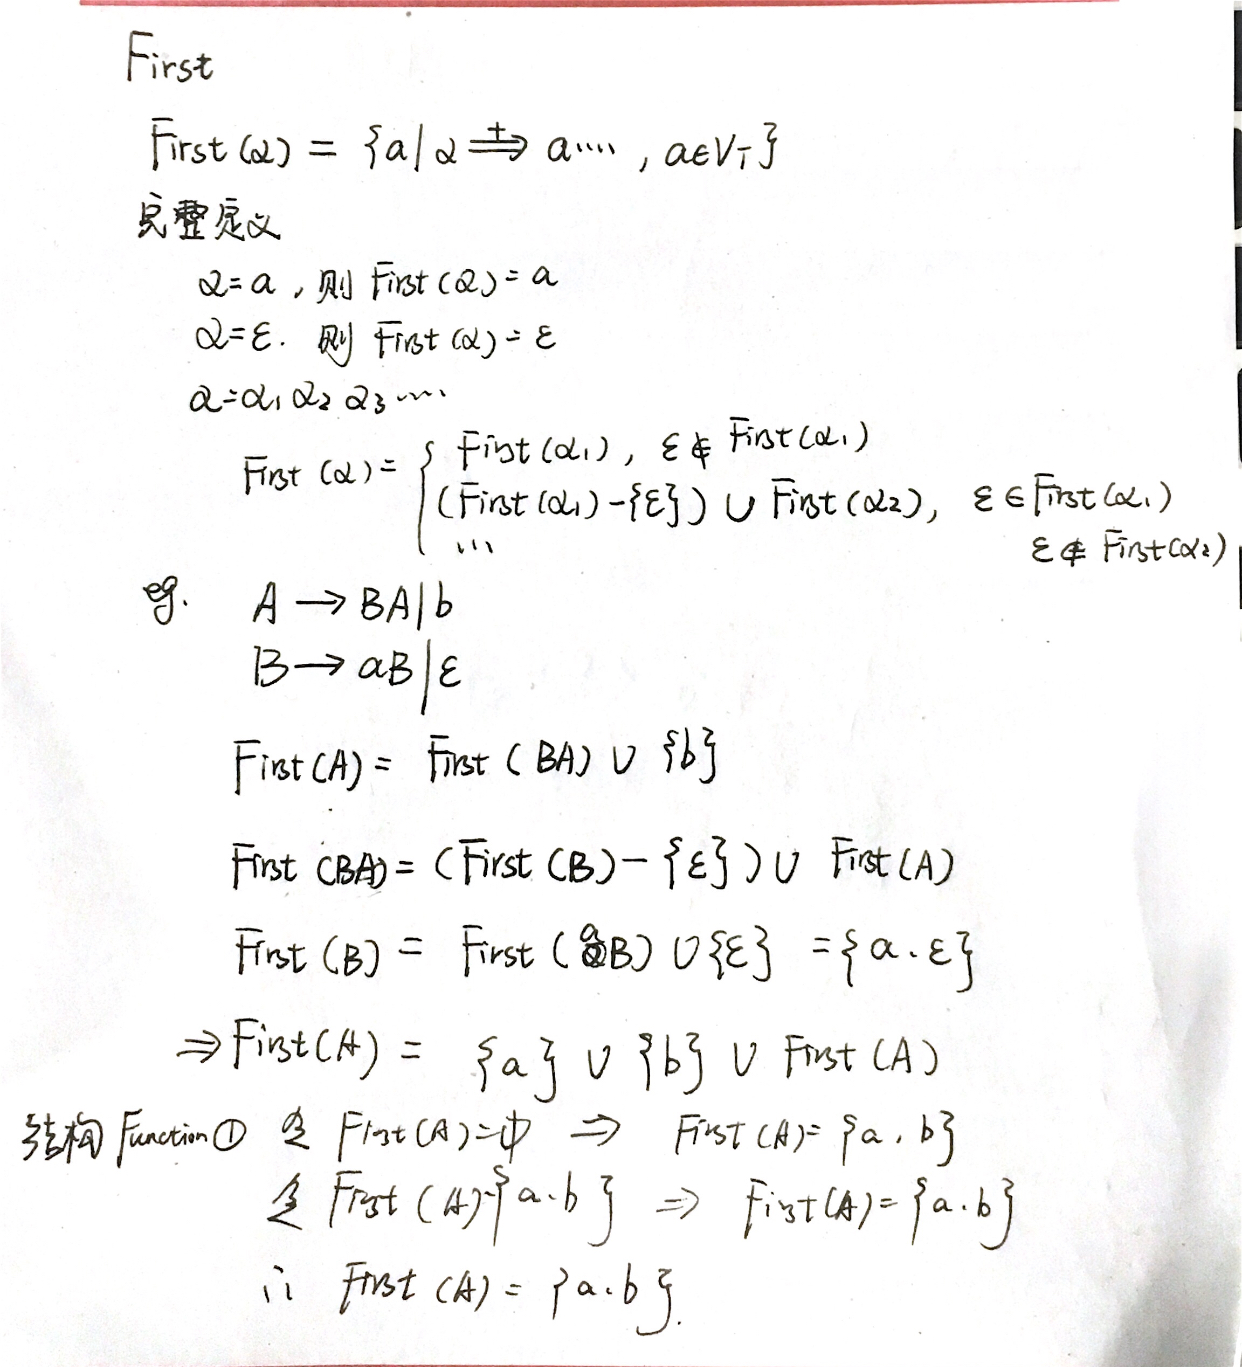 First
First(α) = {a|α ⇒⁺ a····, a∈V_T}
完整定义
α=a, 则 First(α)=a
α=ε. 则 First(α)=ε
α=α₁α₂α₃····
First(α)= { First(α₁), ε∉First(α₁)
(First(α₁)-{ε}) ∪ First(α₂), ε∈First(α₁)
··· ε∉First(α₂)
eg. A → BA|b
B → aB|ε
First(A) = First(BA) ∪ {b}
First(BA) = (First(B)-{ε}) ∪ First(A)
First(B) = First(aB) ∪{ε} ={a.ε}
⇒First(A) = {a} ∪ {b} ∪ First(A)
结构 Function① 令 First(A)=ф ⇒ First(A)={a,b}
令 First(A)={a.b} ⇒ First(A)={a.b}
∴ First(A) = {a.b}.